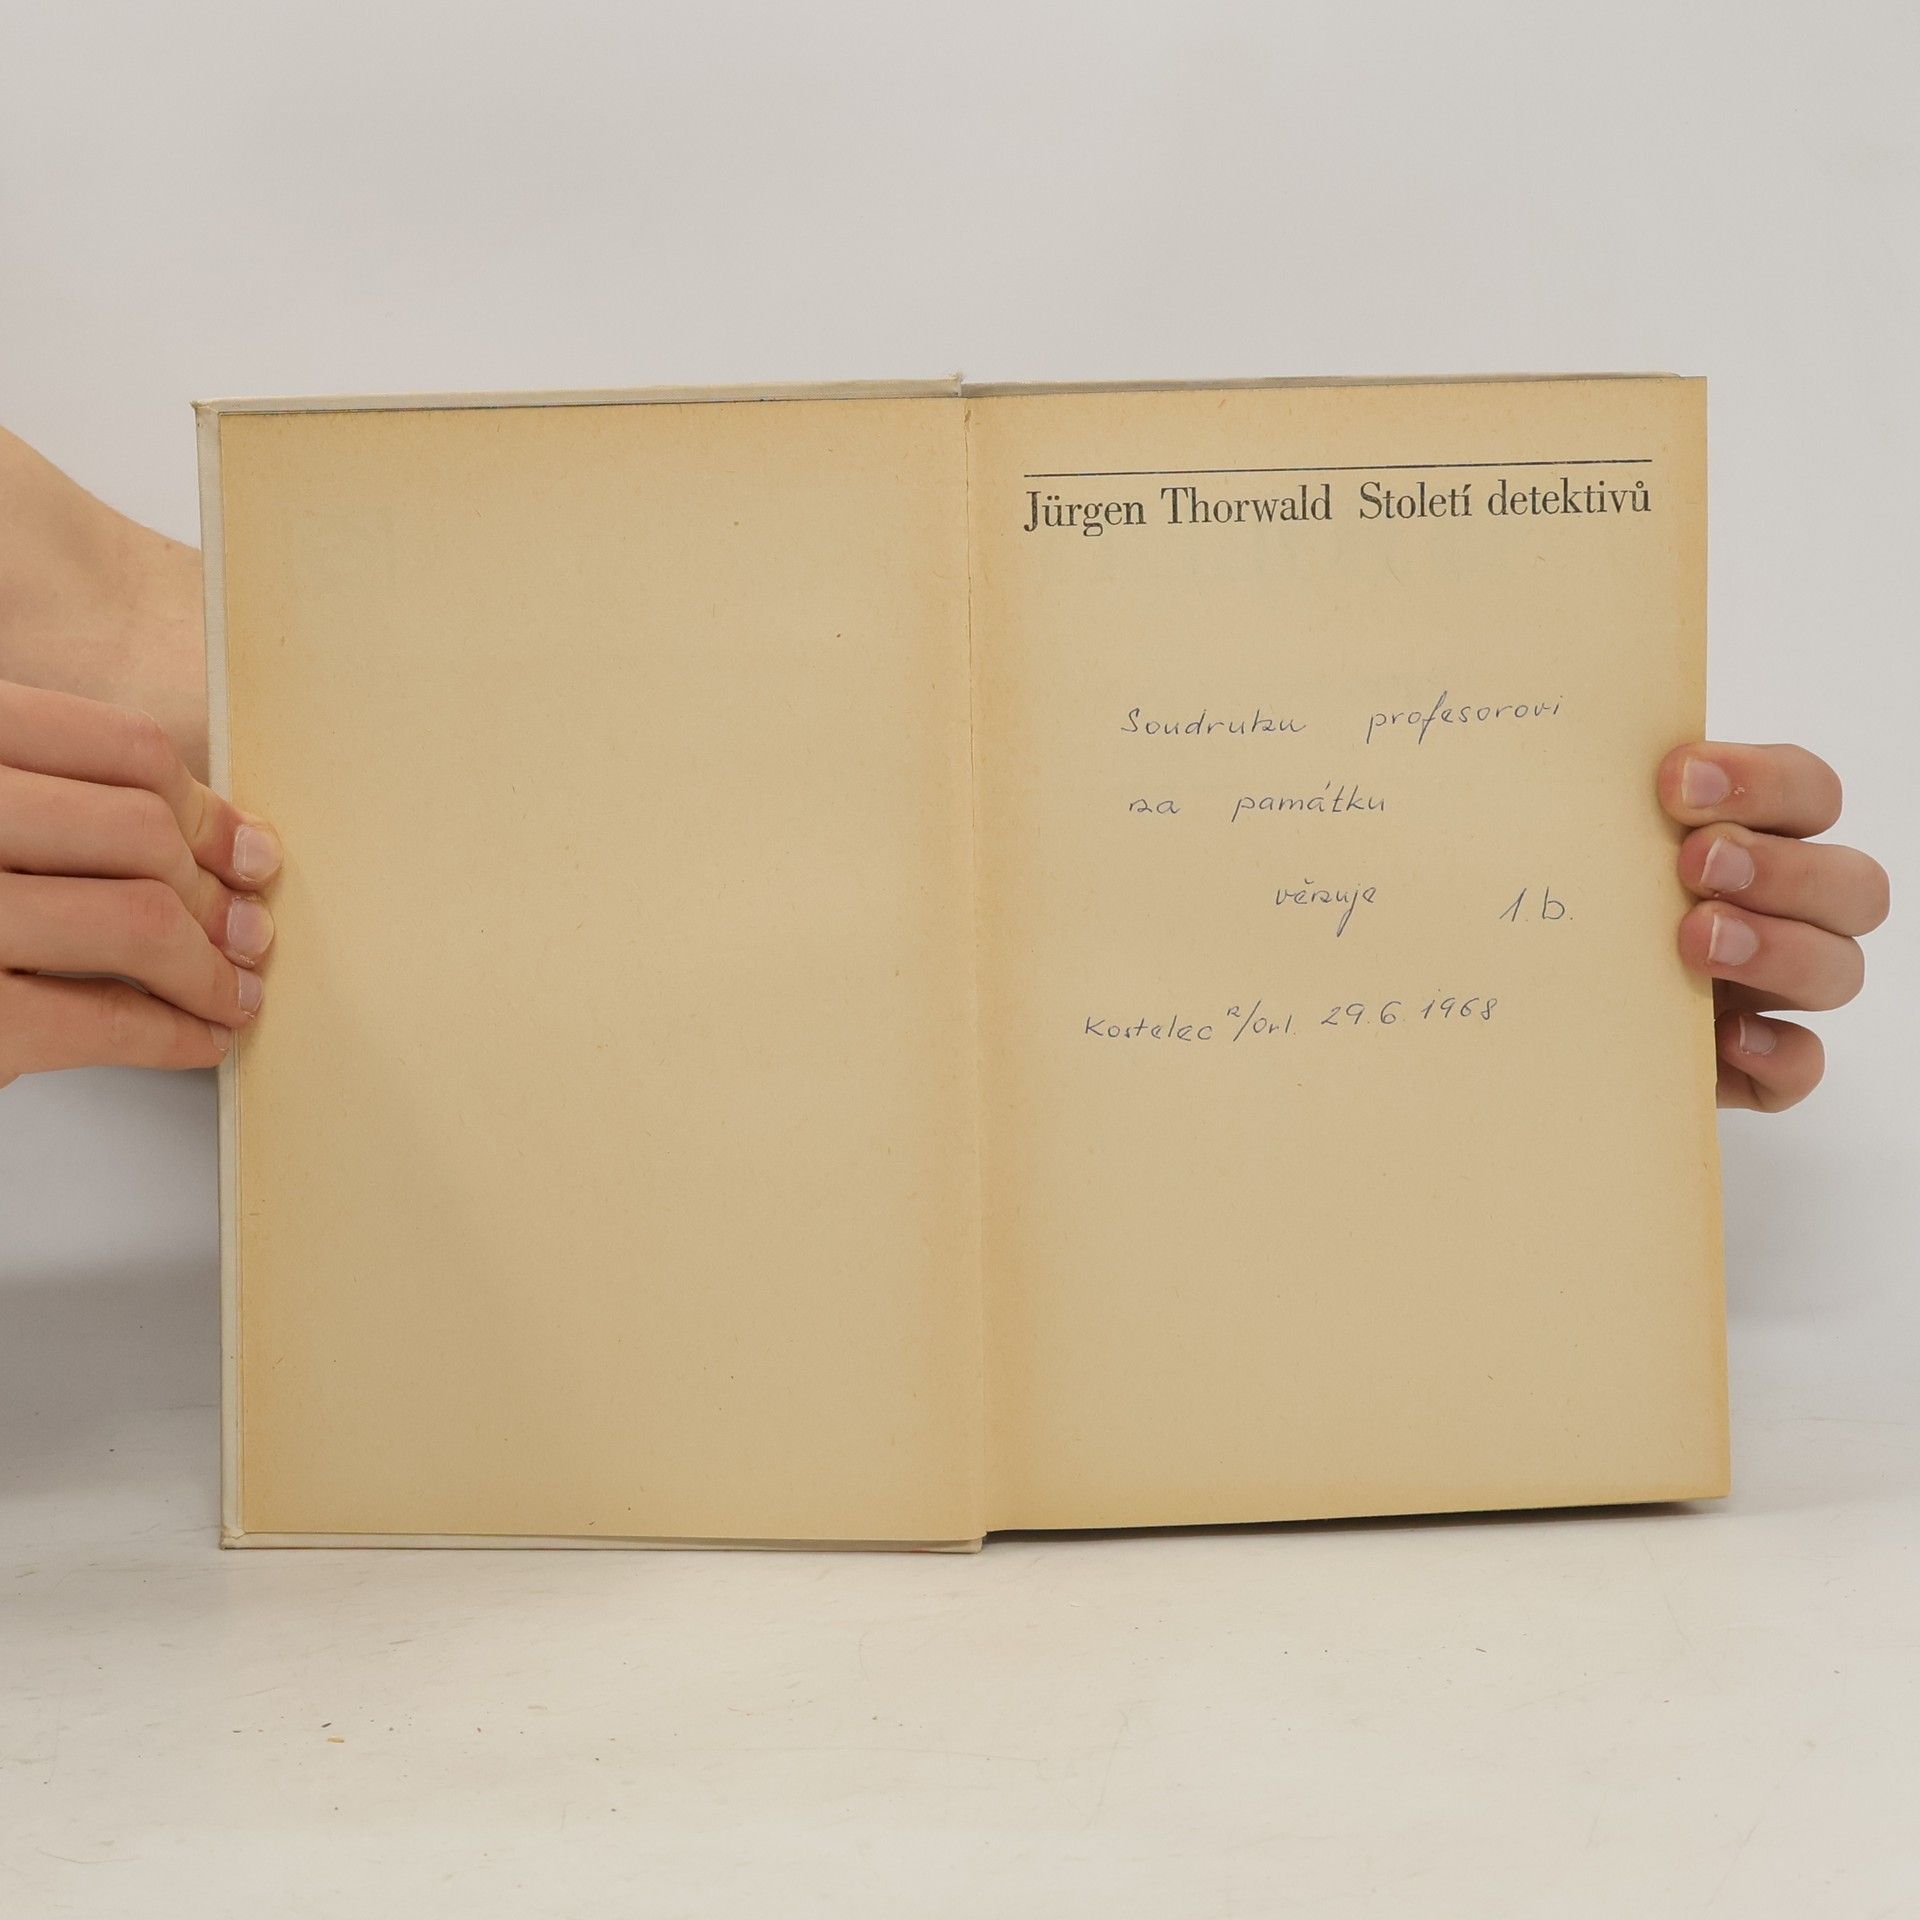 Jürgen Thorwald Století detektivů
Soudruhu profesorovi
na památku
věnuje 1.b.
Kostelec n/Orl. 29.6.1968